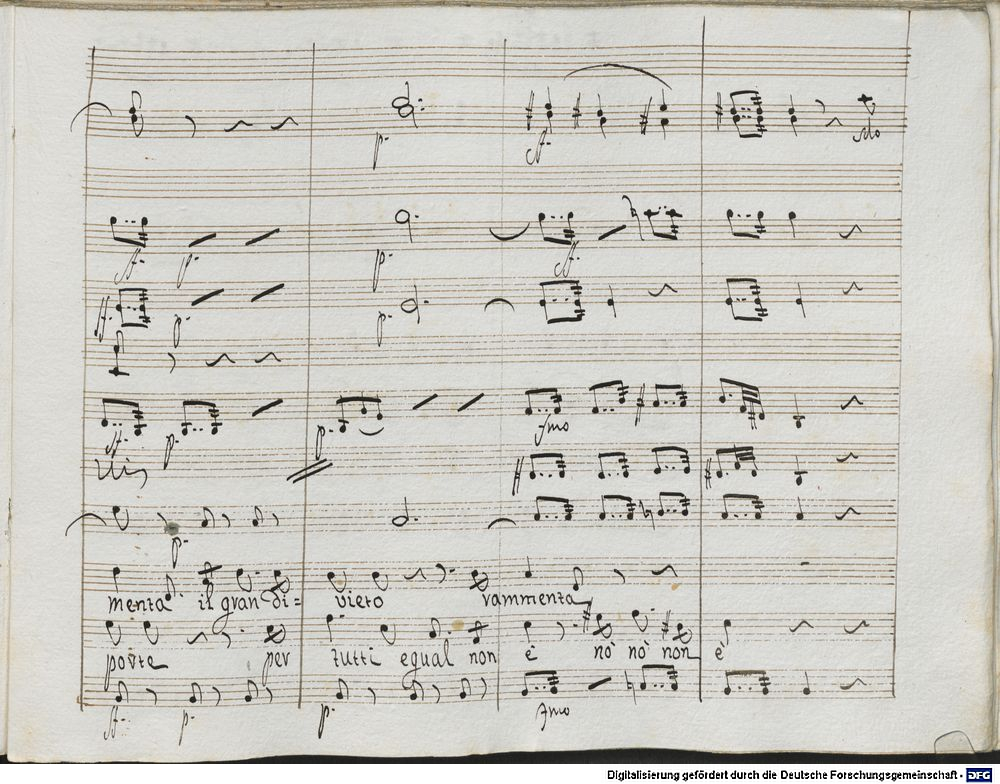 p.
sf. solo
sf. p. p. sf.
ff p. p.
sf. p. p. fmo
Unis
p.
menta il gran di= vieto rammenta
porte per tutti egual non è nò nò non è
sf. p. p. fmo
Digitalisierung gefördert durch die Deutsche Forschungsgemeinschaft - DFG